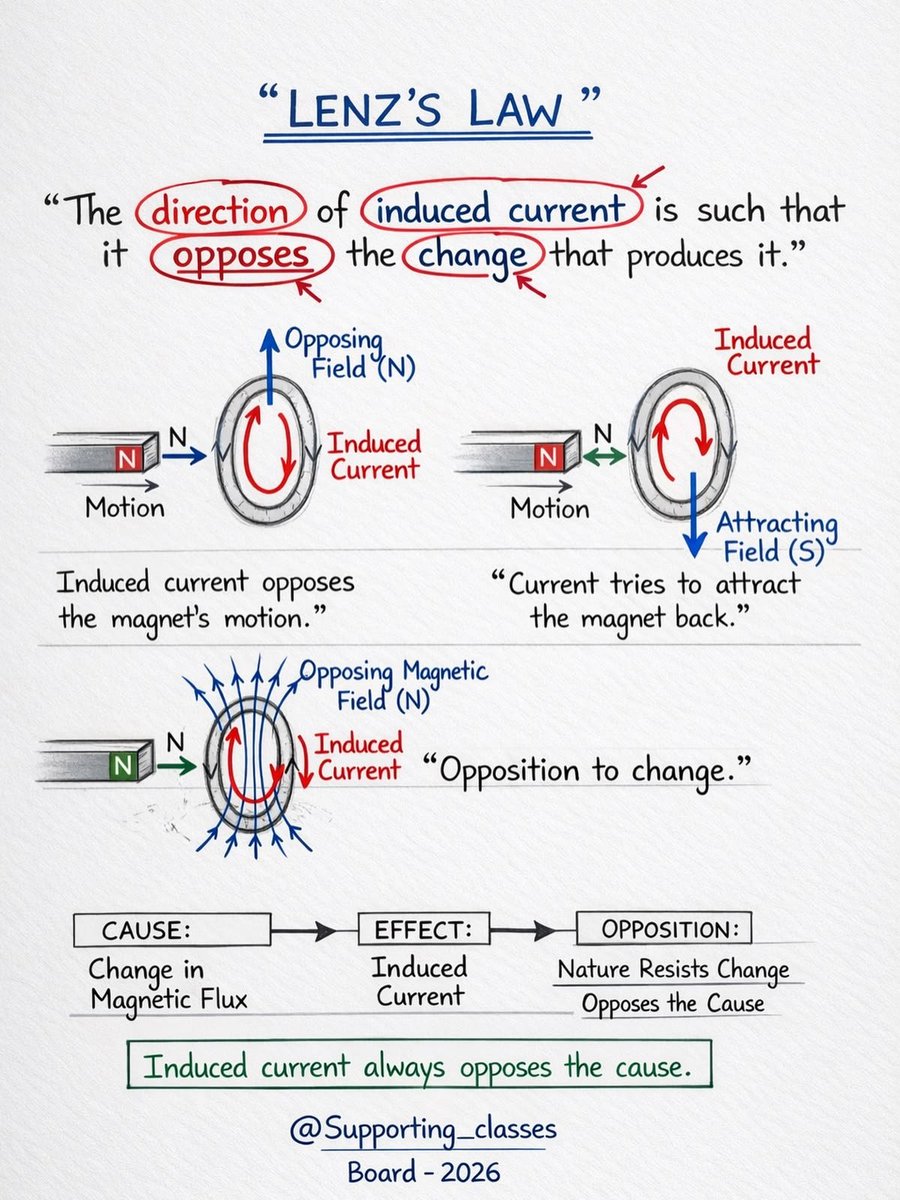 “LENZ’S LAW”
“The direction of induced current is such that
it opposes the change that produces it.”
Opposing
Field (N)
N
N
Induced
Current
Motion
Induced
Current
N
N
Motion
Attracting
Field (S)
Induced current opposes
the magnet’s motion.”
“Current tries to attract
the magnet back.”
Opposing Magnetic
Field (N)
N
N
Induced
Current
“Opposition to change.”
CAUSE:
Change in
Magnetic Flux
EFFECT:
Induced
Current
OPPOSITION:
Nature Resists Change
Opposes the Cause
Induced current always opposes the cause.
@Supporting_classes
Board - 2026